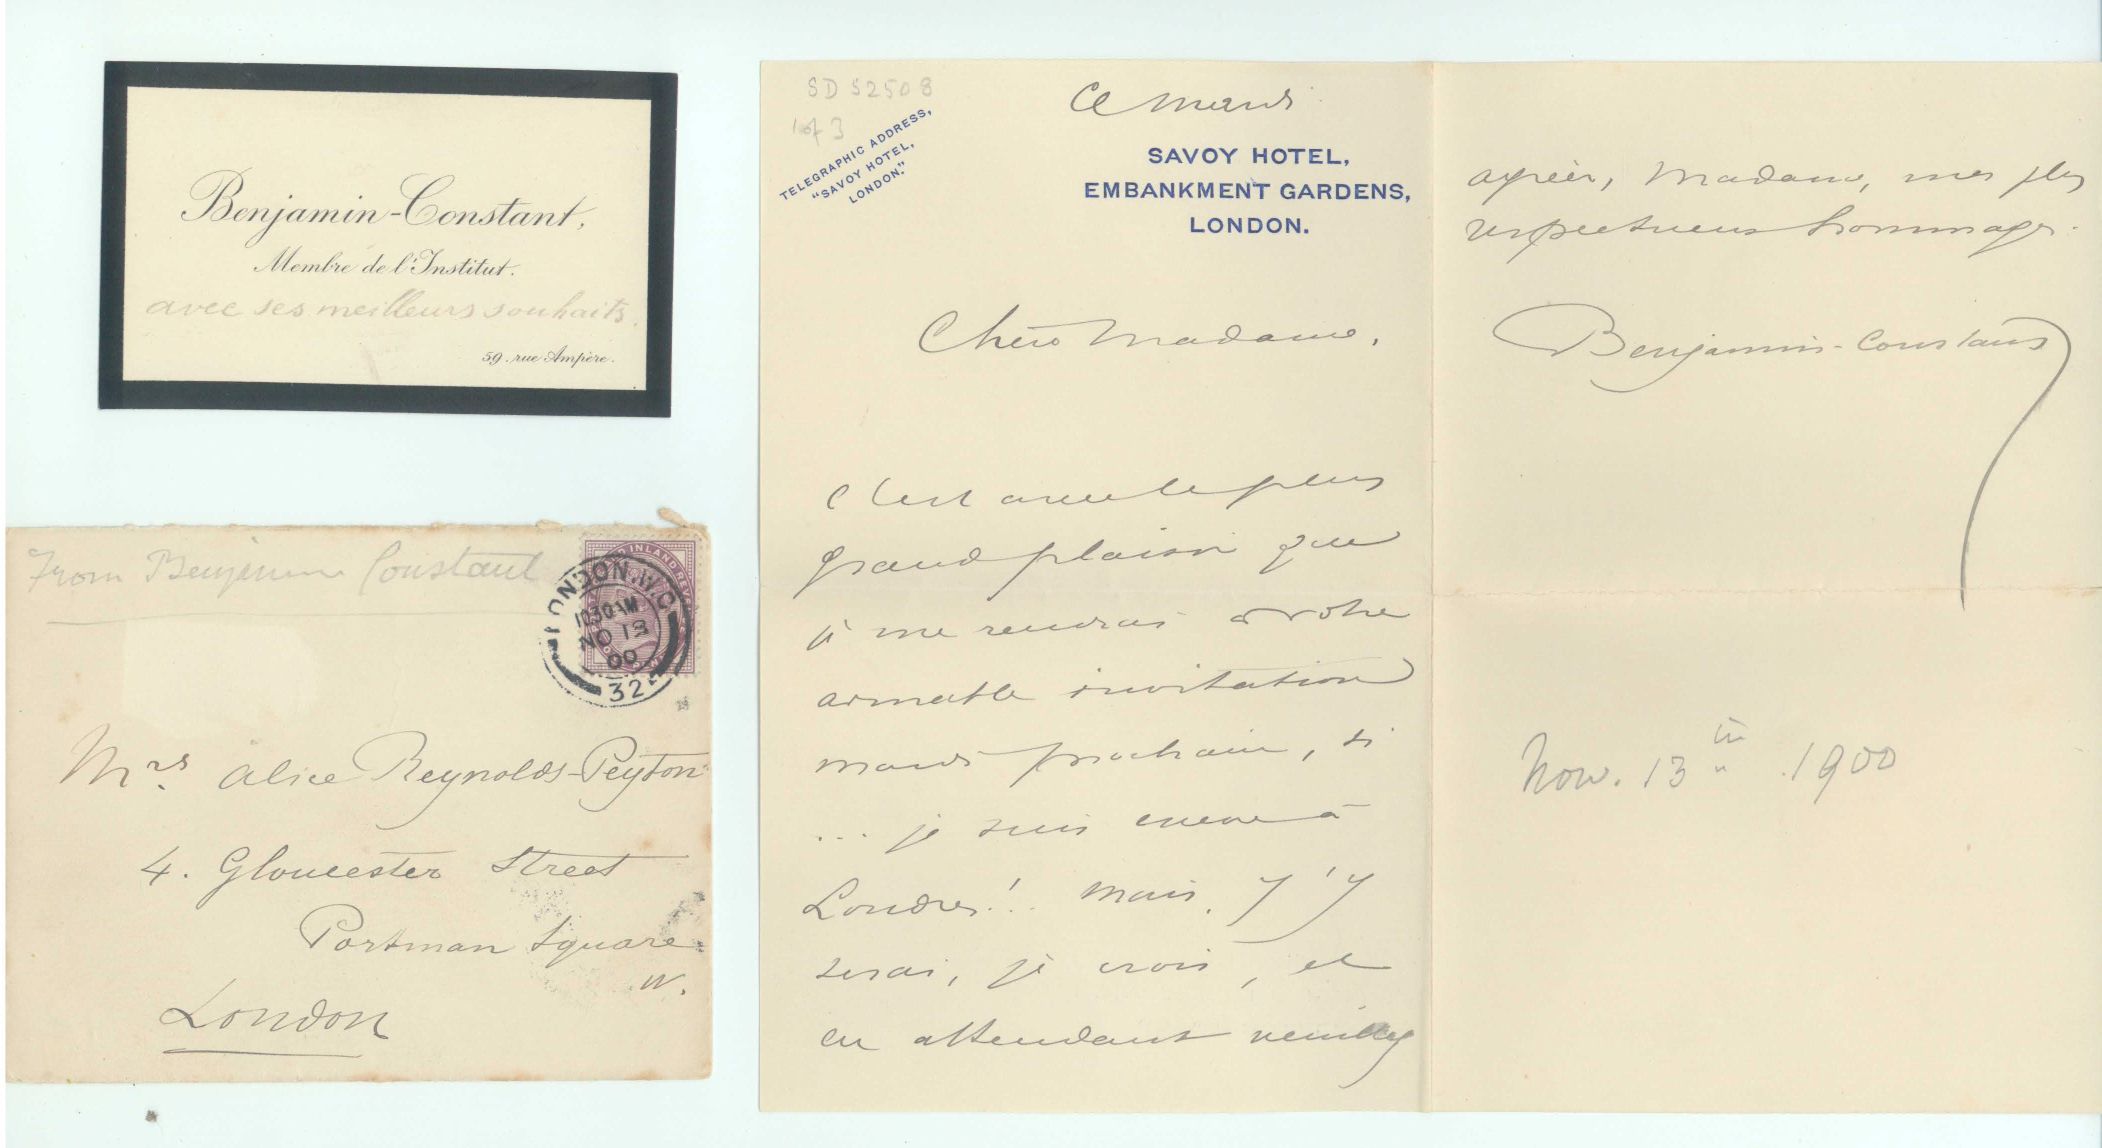 Benjamin-Constant,
Membre de l'Institut.
avec ses meilleurs souhaits.
59. rue Ampère.
From Benjamin Constant
LONDON. W.C
10 30 AM
NO 13
00
32
INLAND REVE
Mrs Alice Reynolds-Peyton
4. Gloucester Street
Portman Square
W.
London
SD S2508
1 of 3
TELEGRAPHIC ADDRESS,
"SAVOY HOTEL,
LONDON."
Ce mardi
SAVOY HOTEL,
EMBANKMENT GARDENS,
LONDON.
Chère Madame,
C'est avec le plus
grand plaisir que
je me rendrai à votre
aimable invitation
mardi prochain, si
... je suis encore à
Londres!.. Mais, j'y
serai, je crois, et
en attendant veuillez
agréer, Madame, mes plus
respectueux hommages.
Benjamin-Constant
Nov. 13th 1900